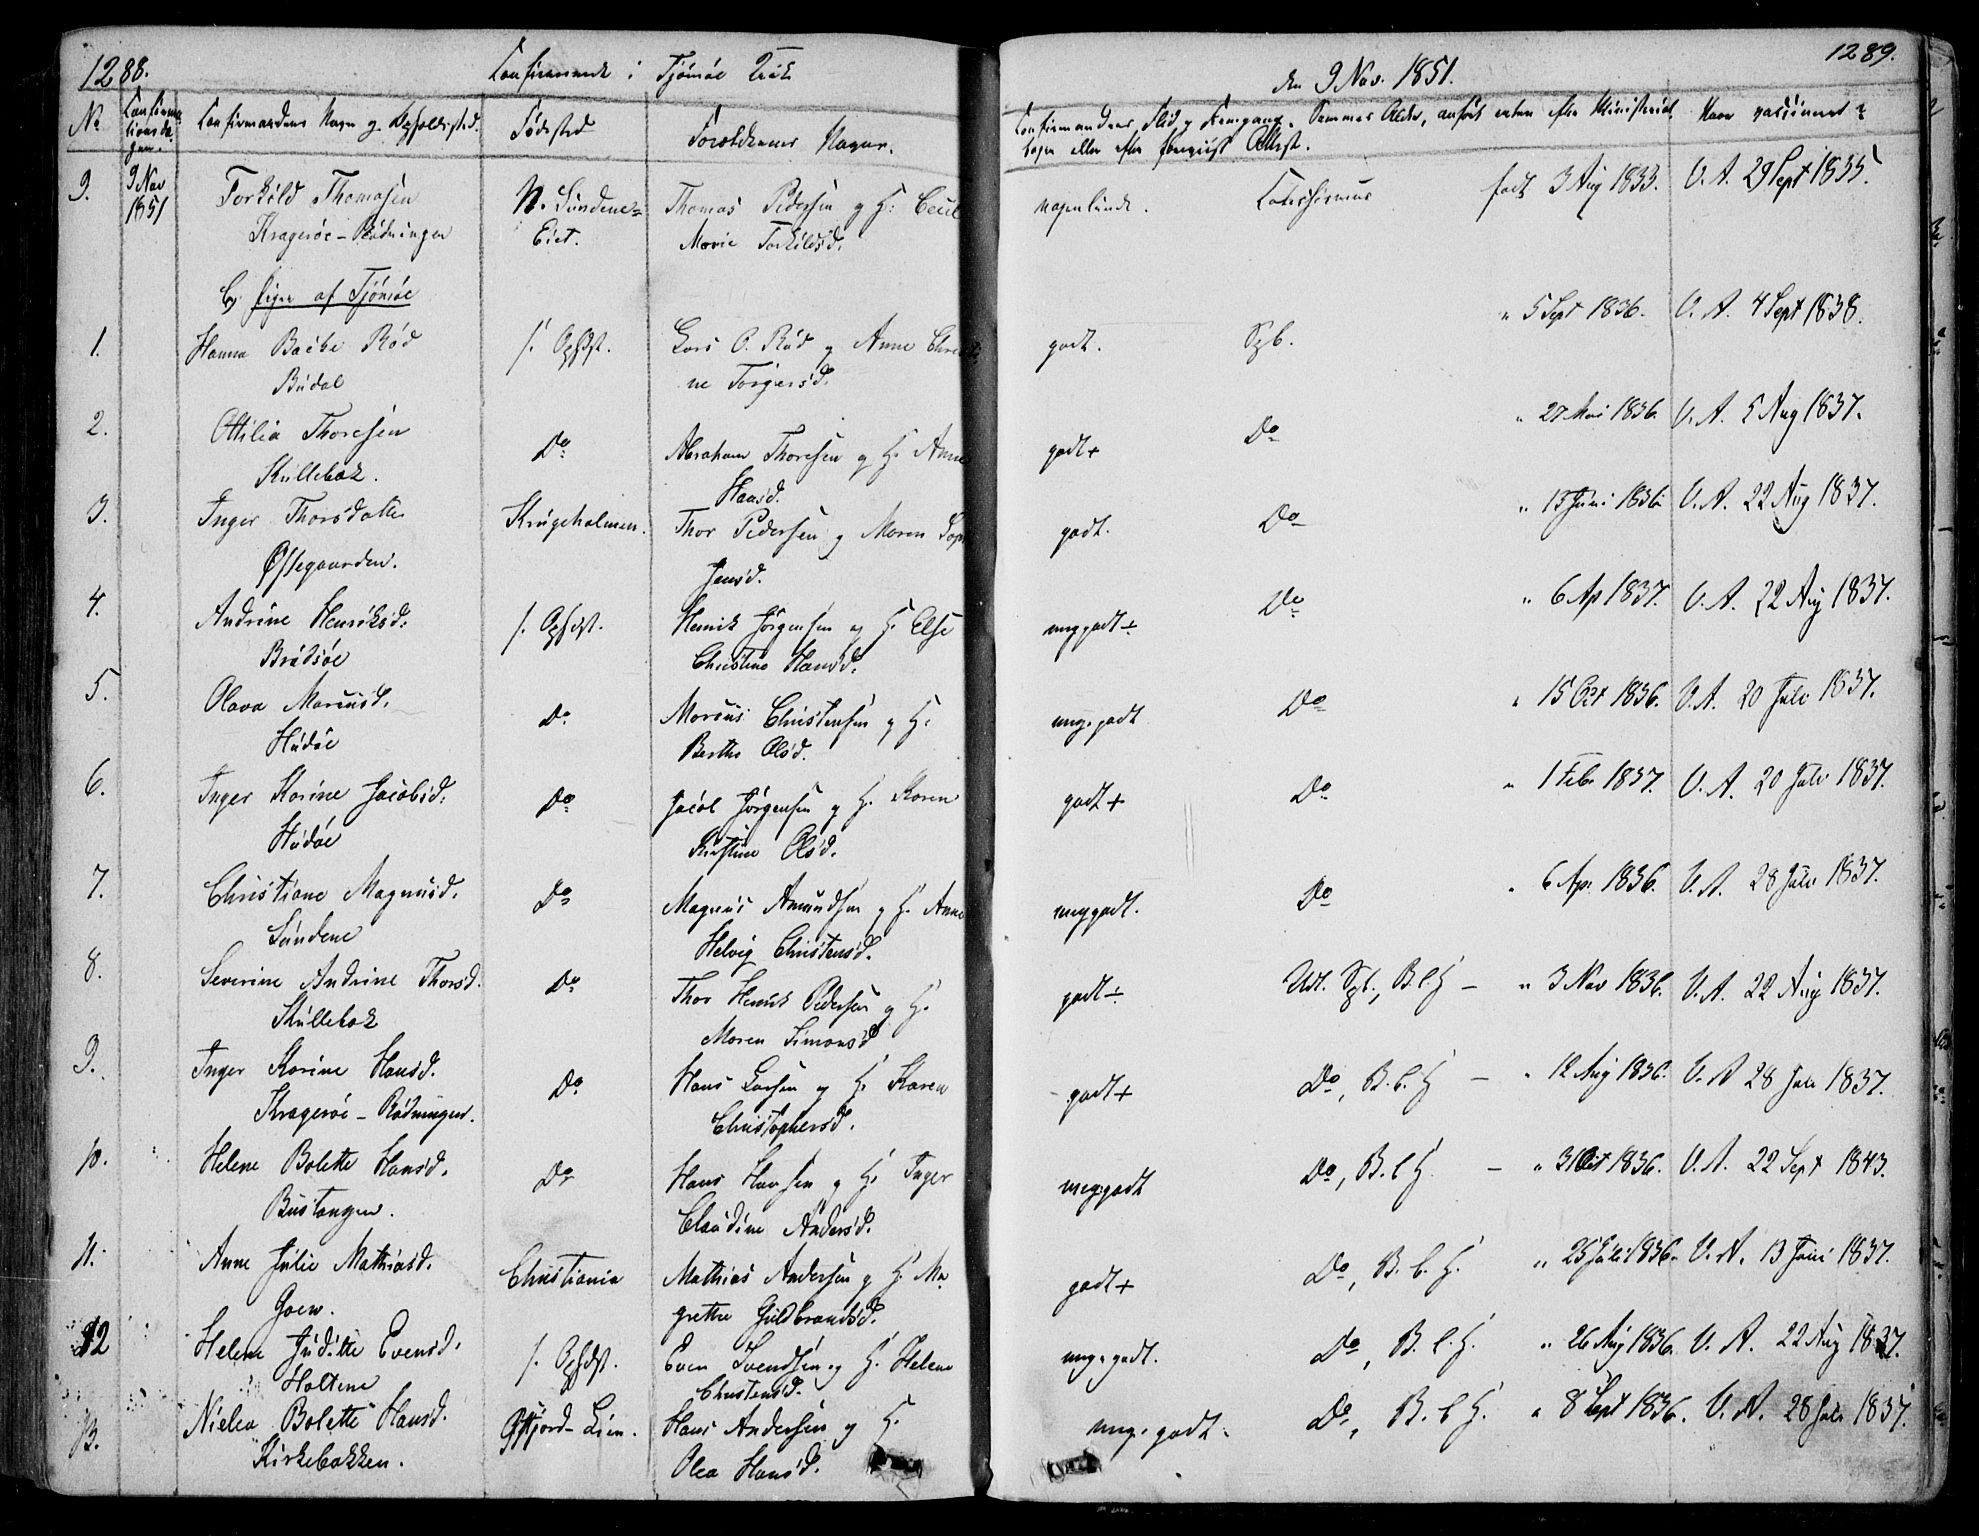 1288.
Confirmerede i Tjömöe Kirke
No
Confirma-
tionsda-
gen.
Confirmandens Navn og Opholdssted.
Födested
Forældrenes Navne.
9.
9 Nov
1851
Torkild Thomasen
Krageröe-Rödningen
N. Sundene-
Eiet.
Thomas Pedersen og H. Cecil
Marie Torkildsd.
b, Piger af Tjömöe
1.
Hanna Baebe Röd
Budal
s. Ophdst.
Lars O. Röd og Anne Chris
ne Torgersd.
2.
Ottilia Thoresen
Kullebok.
Do
Abraham Thoresen og H. Anne
Hansd.
3.
Inger Thorsdatter
Østegaarden.
Krugeholmen.
Thor Pedersen og Maren Sop
Jensd.
4.
Andrine Henriksd.
Brödsöe
s. Ophdst.
Henrik Jörgensen og H. Else
Christine Hansd.
5.
Olava Marcusd.
Hudöe
Do
Marcus Christensen og H.
Berthe Olsd.
6.
Inger Karine Jacobsd.
Hudöe
Do
Jacob Jörgensen og H. Karen
Kirstine Olsd.
7.
Christiane Magnusd.
Sundene
Do
Magnus Amundsen og H. Anne
Helvig Christensd.
8.
Severine Andrine Thorsd.
Kullebok
Do
Thor Henrik Pedersen og H.
Maren Simonsd
9.
Inger Karine Hansd.
Krageröe-Rödningen.
Do
Hans Larsen og H. Karen
Christophersd.
10.
Helene Bolette Hansd.
Bustangen.
Do
Hans Hansen og H. Inger
Claudine Andersd.
11.
Anne Julie Mathiasd.
Goen.
Christiania
Mathias Andersen og H. Ma
grethe Guldbrandsd.
12
Helene Juditte Evensd.
Holtene
s. Ophdst.
Even Svendsen og H. Helene
Christensd.
13.
Nielea Bolette Hansd.
Kirkebakken.
Hans Andersen og H.
Olea Hansd.
den 9 Nov. 1851.
1289.
Confirmandens Flid og Fremgang. Sammes Alder, anfört enten efter Ministerial
bogen eller efter foreviist Attest.
Naar vaccineret?
maadelig.
födt 3 Aug 1833.
V. A. 29 Sept 1835.
godt.
Spb.
" 5 Sept 1836.
V. A. 4 Sept 1838.
godt+
Do
" 27 Mai 1836.
V. A. 5 Aug 1837.
godt.
Do
" 13 Juni 1836
V. A. 22 Aug 1837.
meg godt÷
Do
" 6 Ap 1837.
V. A. 22 Aug 1837.
meg. godt
Do
" 15 Oct 1836.
V. A. 20 Juli 1837.
godt+
Do
" 1 Feb. 1837.
V. A. 20 Juli 1837.
meg godt.
Do
" 6 Ap. 1836.
V. A. 28 Juli 1837.
godt÷
Udt. Spb., B. l. H —
" 3 Nov 1836.
V. A. 22 Aug 1837.
godt+
Do, B. l. H —
" 12 Aug 1836.
V. A 28 Juli 1837.
meg: godt
Do, B. l H. —
" 31 Oct 1836.
V. A. 22 Sept 1843.
godt+
Do, B. l. H.
" 25 Juli 1836.
V. A. 13 Juni 1837.
meg. godt.
Do, B. l. H.
" 26 Aug 1836.
V. A. 22 Aug 1837.
meg. godt.
Do, B. l H.
" 8 Sept 1836.
V. A. 28 Juli 1837.